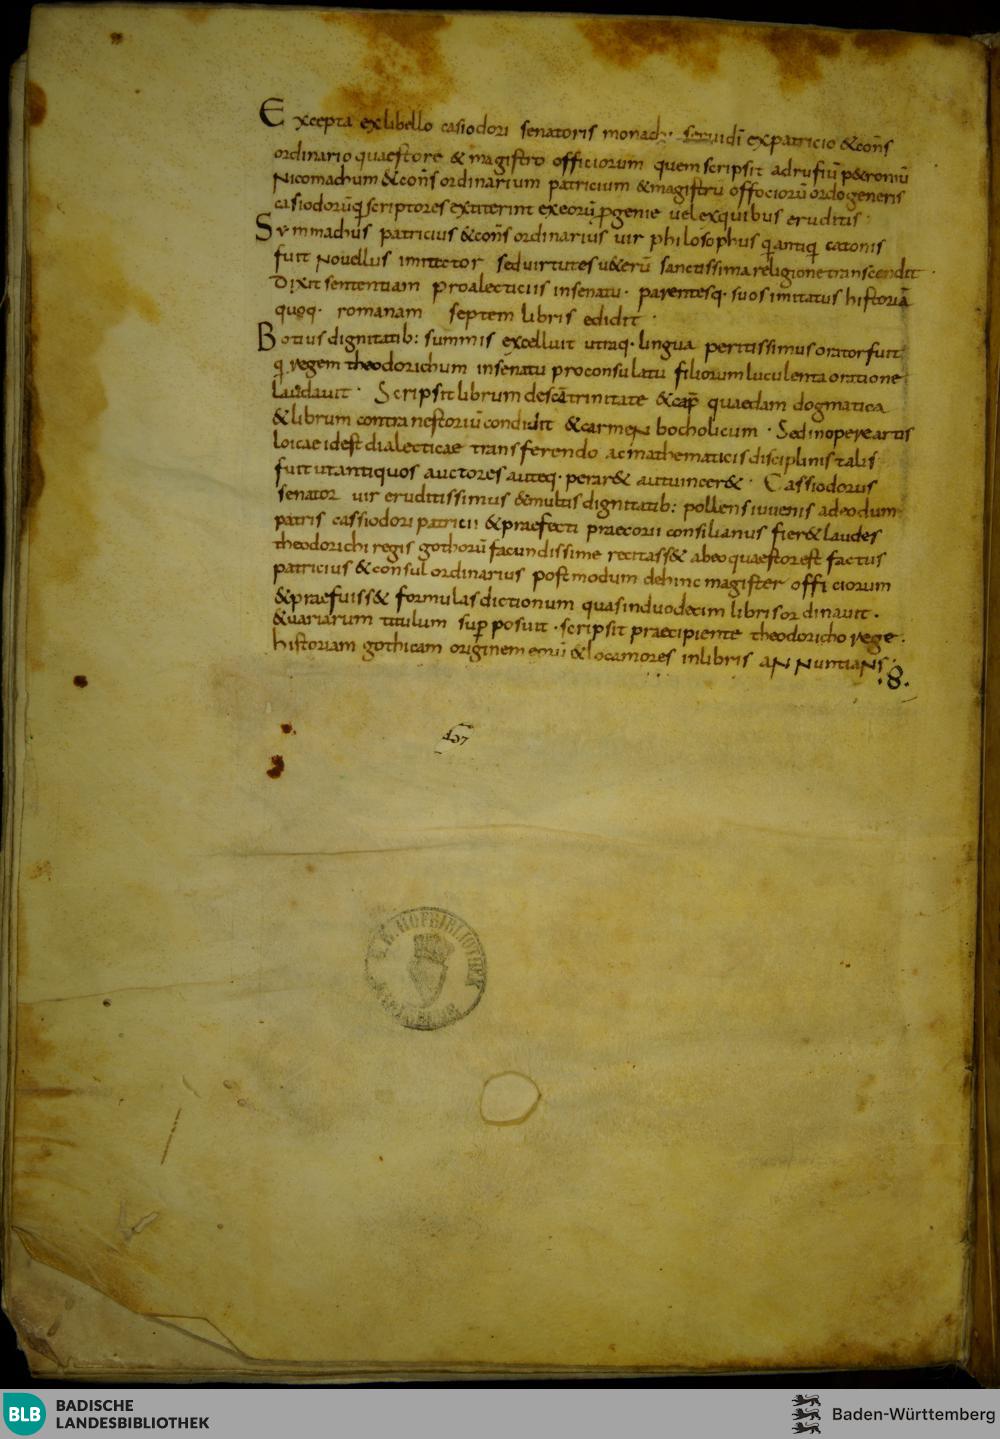 Excepta ex libello casiodori senatoris monachi seruidī ex patricio & con̄s
ordinario quaestore & magistro officiorum quem scripsit ad rufiū p&roniū
Nicomachum & con̄s ordinarium patricium & magistrū offociorū ordo generis
casiodorūq scriptores extiterint ex eorū pgenie uel ex quibus eruditis·
Symmachus patricius & con̄s ordinarius uir philosophus qi antiqi catonis
fuit Nouellus imitator sed uirtutes u&erū sanctissima religione transcendit·
Dixit sententiam pro alecticiis in senatu· parentesq· suos imitatus historiā
quoq· romanam septem libris edidit·
Botius dignitatib: summis excelluit utraq· lingua peritissimus orator fuit
qi regem theodorichum in senatu pro consulatu filiorum luculenta oratione
laudauit· Scripsit librum de scā trinitate & cap̄ quaedam dogmatica
& librum contra nestoriū condidit & carmeN bocholicum· Sed in opere artis
loicae id est dialecticae transferendo ac mathematicis disciplinis talis
fuit ut antiquos auctores auteq· perar& aut uincer&· Cassiodorus
senator uir eruditissimus & multis dignitatib: pollens iuuenis adeo dum
patris cassiodori patricii & praefecti praecorii consilianus fier& laudes
theodorichi regis gothorū facundissime recitass& ab eo quaestor est factus
patricius & consul ordinarius postmodum dehinc magister officiorum
& praefuiss& formulas dictionum quas in duodecim libris ordinauit·
& uariarum titulum sup posuit· scripsit praecipiente theodoricho rege·
historiam gothicam originem eorū & loca mores in libris aNNuntiaNs·
·8·
HOFBIBLIOTHEK
BLB
BADISCHE
LANDESBIBLIOTHEK
Baden-Württemberg